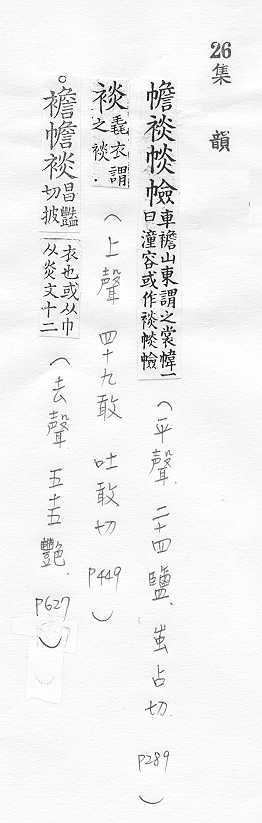 26 集韻
幨裧車襜山東謂之裳幃一曰潼容或作裧（平聲、二十四鹽、蚩占切、P289）
裧毳衣謂之裧．（上聲 四十九敢 吐敢切 P449）
。襜幨裧昌豔切披衣也或从巾从炎文十二（去聲 五十五艷、P627）